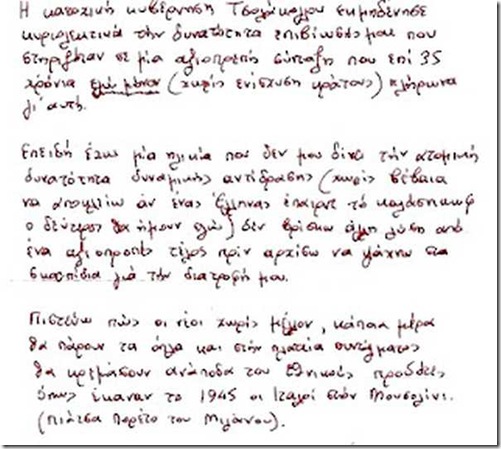 Η κατοχική κυβέρνηση Τσολάκογλου εκμηδένισε
κυριολεκτικά την δυνατότητα επιβίωσής μου που
στηριζόταν σε μία αξιοπρεπή σύνταξη που επί 35
χρόνια εγώ μόνον (χωρίς ενίσχυση κράτους) πλήρωνα
γι' αυτή.
Επειδή έχω μία ηλικία που δεν μου δίνει την ατομική
δυνατότητα δυναμικής αντίδρασης (χωρίς βέβαια
να αποκλείω άν ένας Έλληνας έπαιρνε το καλάσνικωφ
ο δεύτερος θα ήμουν εγώ) δεν βρίσκω άλλη λύση από
ένα αξιοπρεπές τέλος πρίν αρχίσω να ψάχνω στα
σκουπίδια γιά την διατροφή μου.
Πιστεύω πώς οι νέοι χωρίς μέλλον, κάποια μέρα
θα πάρουν τα όπλα και στην πλατεία συντάγματος
θα κρεμάσουν ανάποδα τους εθνικούς προδότες
όπως έκαναν το 1945 οι Ιταλοί στον Μουσολίνι.
(Πιάτσα Λορέτο του Μιλάνου).